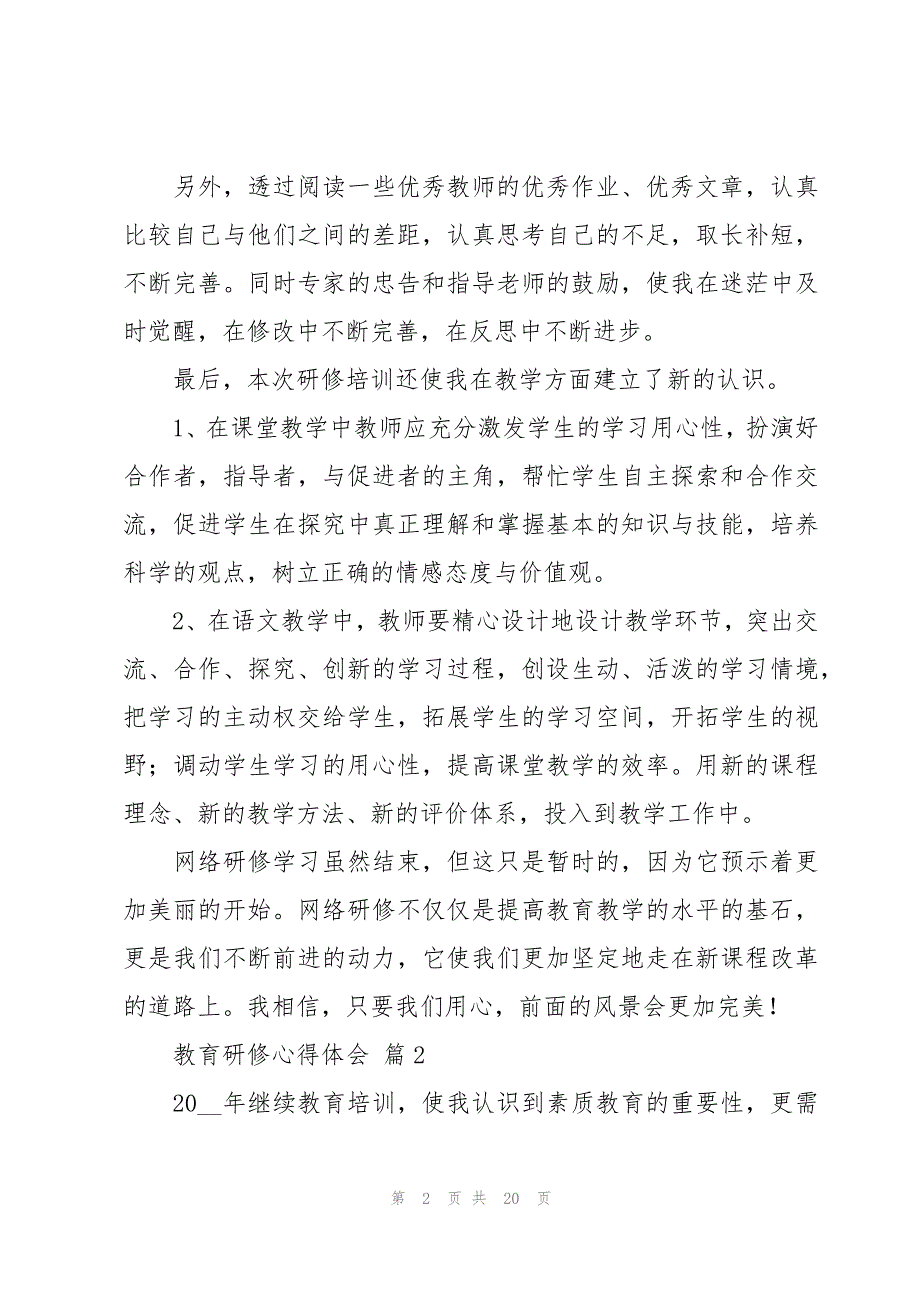 另外，透过阅读一些优秀教师的优秀作业、优秀文章，认真
比较自己与他们之间的差距，认真思考自己的不足，取长补短，
不断完善。同时专家的忠告和指导老师的鼓励，使我在迷茫中及
时觉醒，在修改中不断完善，在反思中不断进步。
最后，本次研修培训还使我在教学方面建立了新的认识。
1、在课堂教学中教师应充分激发学生的学习用心性，扮演好
合作者，指导者，与促进者的主角，帮忙学生自主探索和合作交
流，促进学生在探究中真正理解和掌握基本的知识与技能，培养
科学的观点，树立正确的情感态度与价值观。
2、在语文教学中，教师要精心设计地设计教学环节，突出交
流、合作、探究、创新的学习过程，创设生动、活泼的学习情境，
把学习的主动权交给学生，拓展学生的学习空间，开拓学生的视
野；调动学生学习的用心性，提高课堂教学的效率。用新的课程
理念、新的教学方法、新的评价体系，投入到教学工作中。
网络研修学习虽然结束，但这只是暂时的，因为它预示着更
加美丽的开始。网络研修不仅仅是提高教育教学的水平的基石，
更是我们不断前进的动力，它使我们更加坚定地走在新课程改革
的道路上。我相信，只要我们用心，前面的风景会更加完美！
教育研修心得体会 篇2
20__年继续教育培训，使我认识到素质教育的重要性，更需
第 2 页 共 20 页